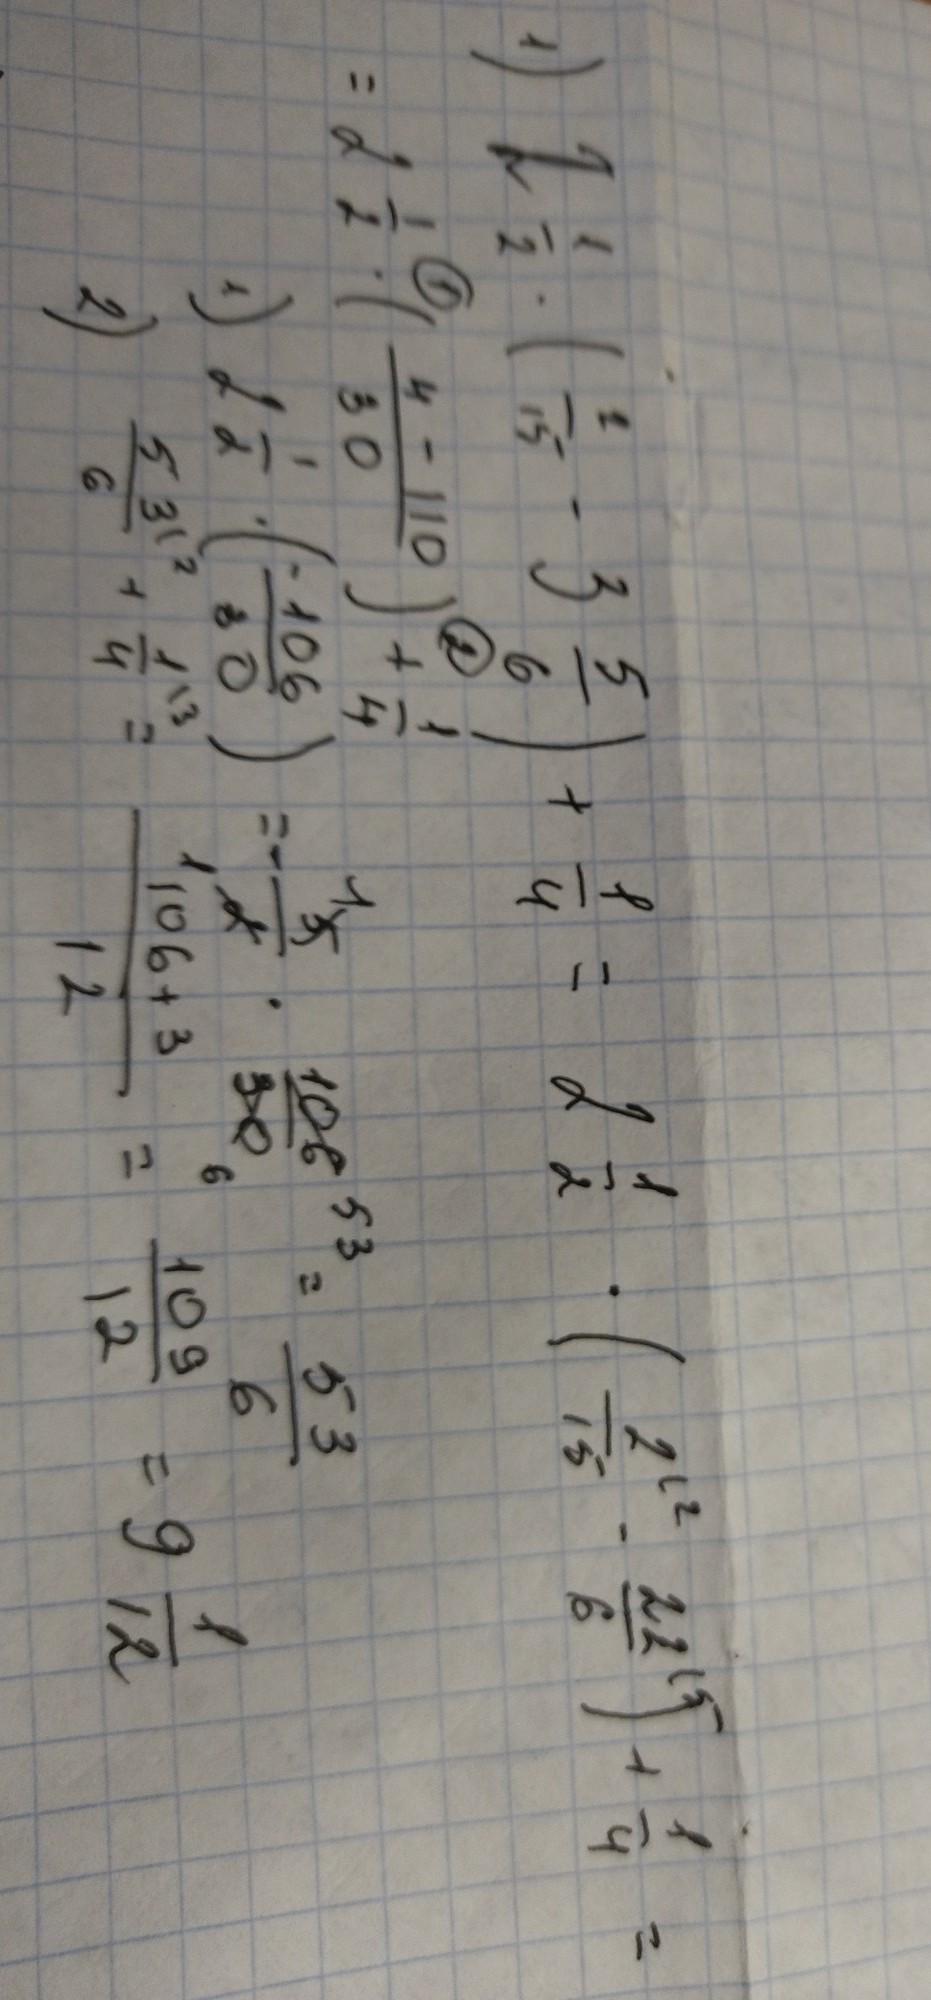 1) 2 1/2 · (2/15 - 3 5/6) + 1/4 = 2 1/2 · (2\2/15 - 22\5/6) + 1/4 =
= 2 1/2 ·① (4 - 110/30) +② 1/4
1) 2 1/2 · (-106/30) = - 5 1/2 1 · 106 53/30 6 = 53/6
2) 53\2/6 + 1\3/4 = 106+3/12 = 109/12 = 9 1/12